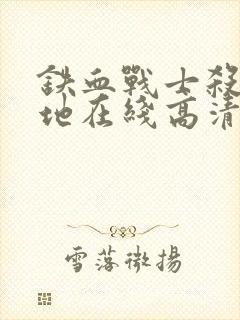 鉄血戰士殺
地在綫高清
雪落微揚